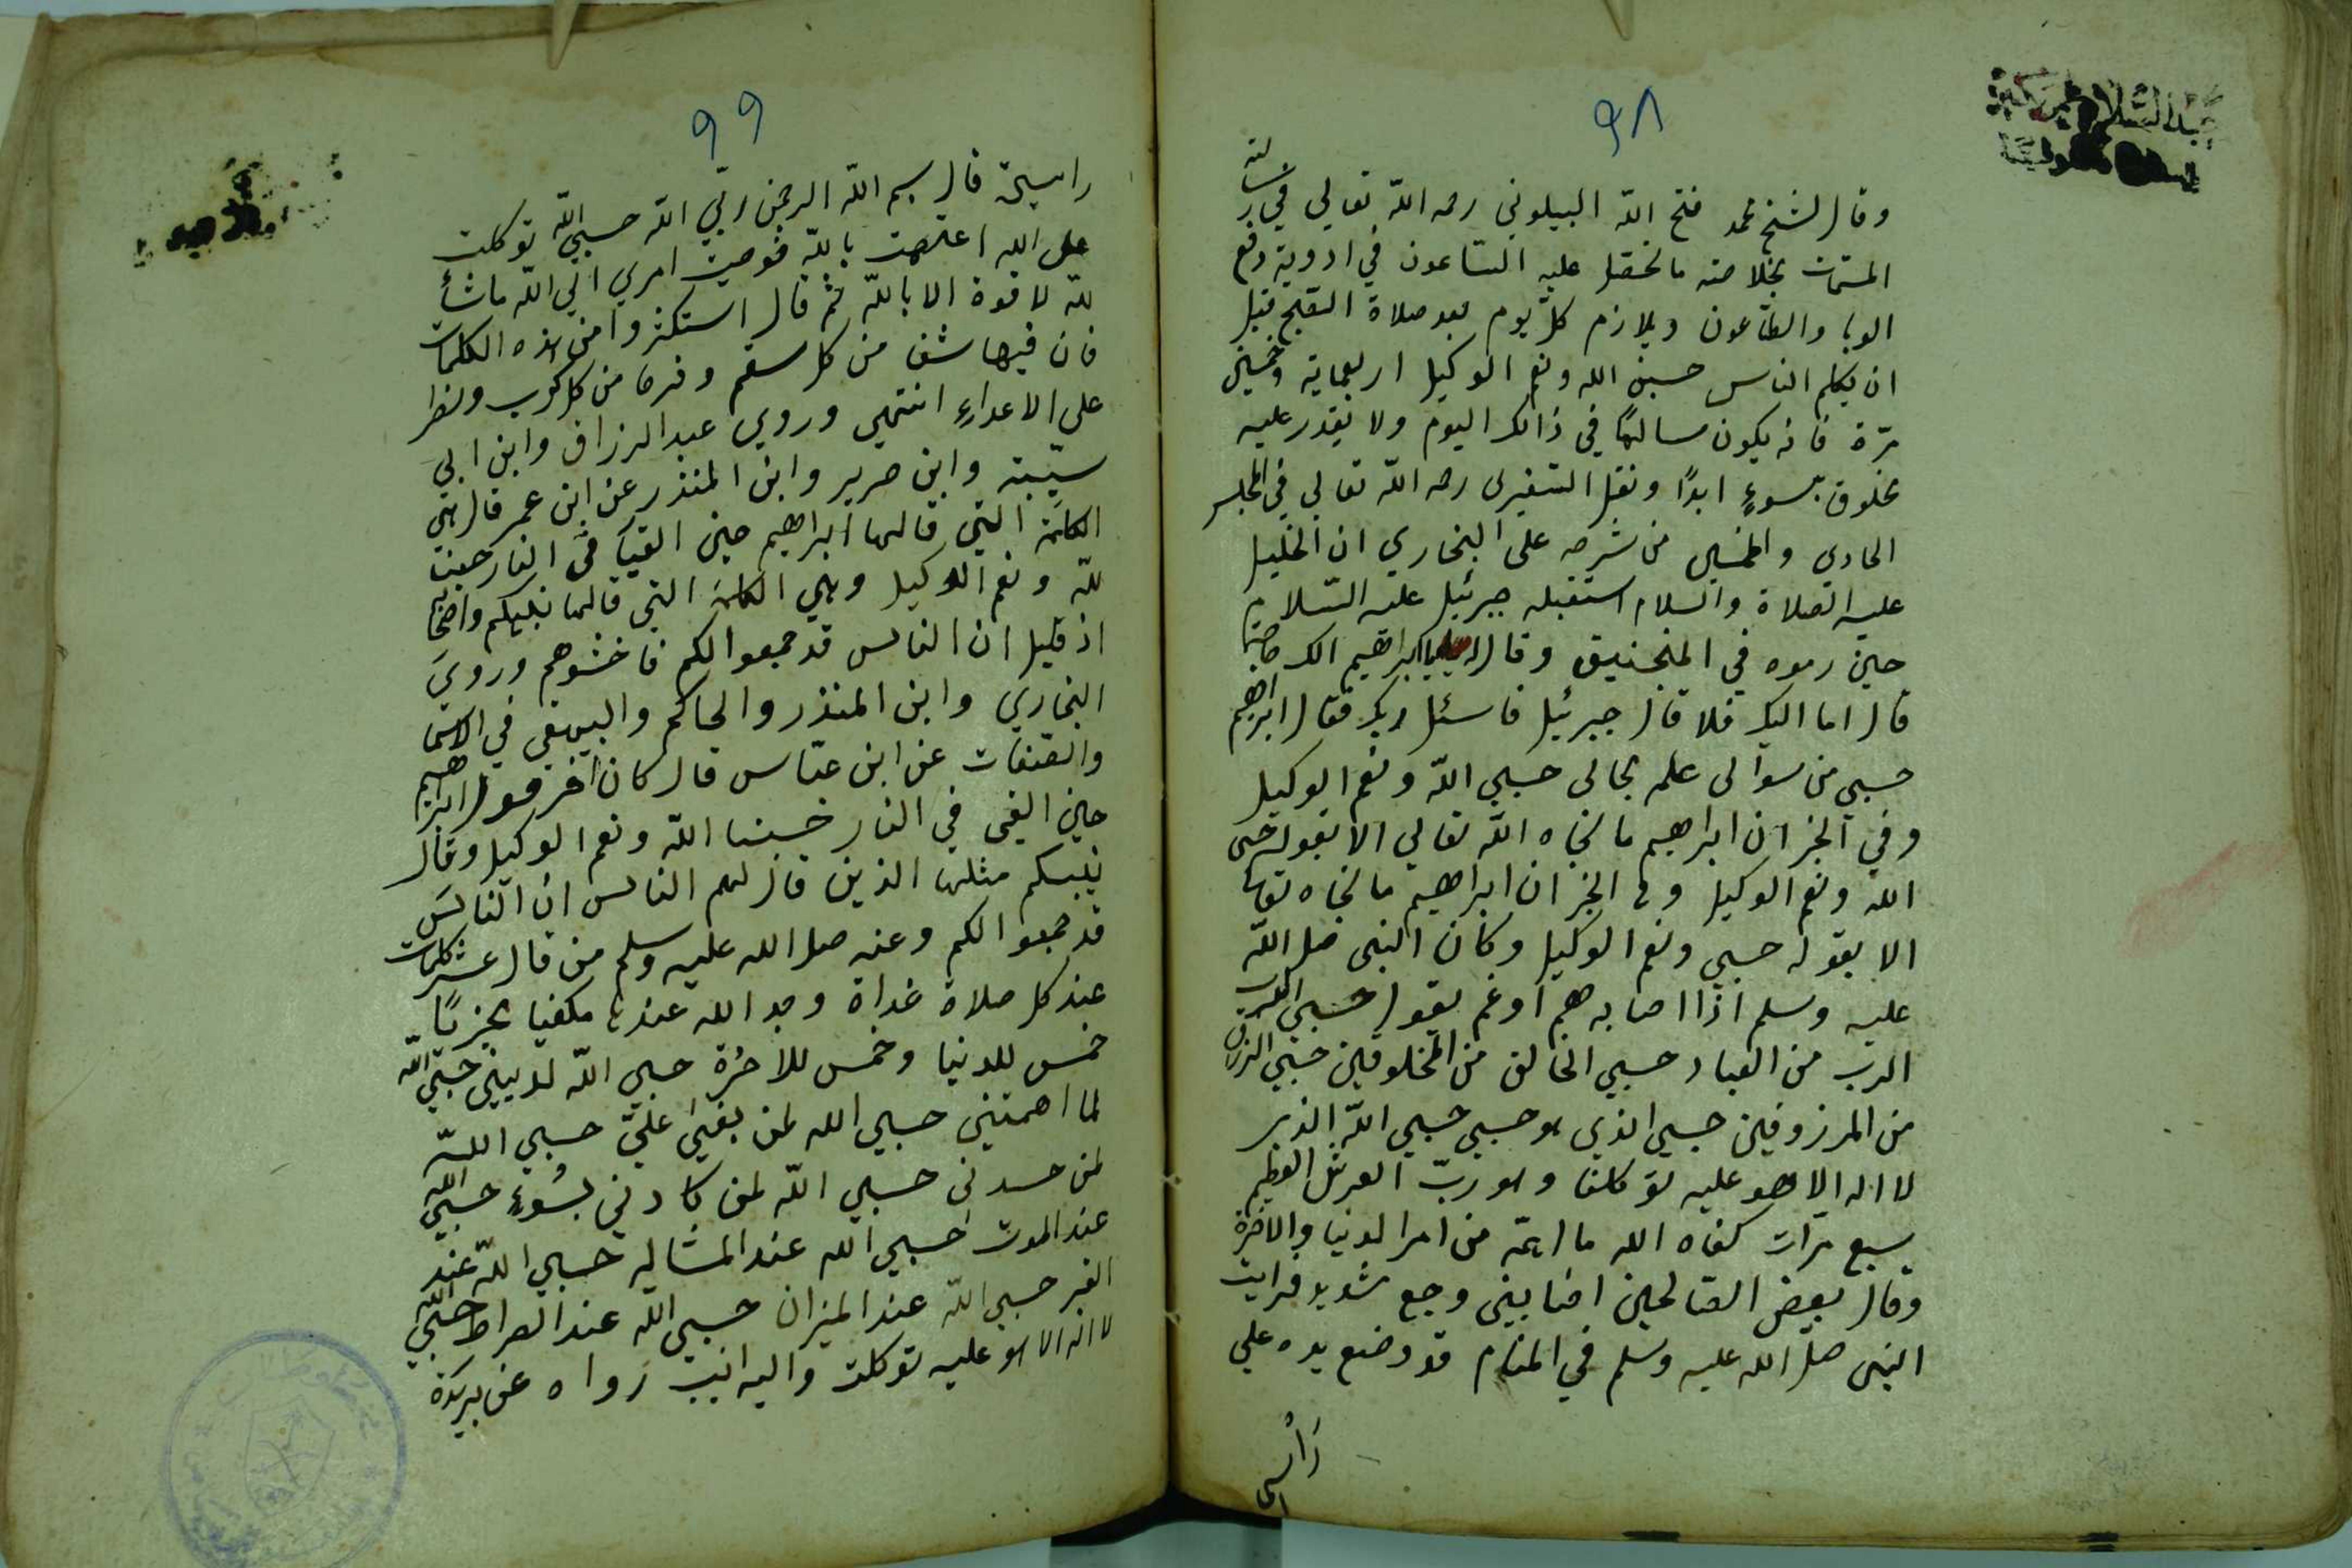 ٩٨
وقال الشيخ محمد فتح الله البيلوني رحمه الله تعالي في رسالته
المسمات بخلاصة ما تحصل عليه الساعون في ادوية دفع
الوبا والطاعون ويلازم كل يوم بعد صلاة الصبح قبل
ان يكلم الناس حسبي الله ونعم الوكيل اربعماية وخمسين
مرّة فانه يكون سالمًا في ذالك اليوم ولا يقدر عليه
مخلوق بسوءٍ ابدًا ونقل السفيري رحمه الله تعالي في المجلس
الحادي والخمسين من شرحه على البخاري ان الخليل
عليه الصلاة والسلام استقبله جبرئيل عليه السلام
حين رموه في المنجنيق وقال يا ابراهيم الك حاجة
قال اما اليك فلا قال جبرئيل فاسئل ربك فقال ابراهيم
حسبي من سوالى علمه بحالى حسبي الله ونعم الوكيل
وفي الخبر ان ابراهيم ما نجاه الله تعالي الا بقوله حسبى
الله ونعم الوكيل وفى الخبر ان ابراهيم ما نجاه
الا بقوله حسبي ونعم الوكيل وكان النبى صلى الله
عليه وسلم اذا اصابه هم او غم يقول حسبي
الرب من العباد حسبي الخالق من المخلوقين حسبي الرزاق
من المرزوقين حسبي الذي هو حسبي حسبي الله الذي
لا اله الا هو عليه توكلت وهو ربّ العرش العظيم
سبع مرات كفاه الله ما اهمّه من امر الدنيا والاخرة
وقال بعض الصالحين اصابني وجع شديد فرايت
النبى صلى الله عليه وسلم في المنام قد وضع يده علي
رأسي
٩٩
راسي قال بسم الله الرحمن ربّي الله حسبي الله توكلت
على الله اعتصمت بالله فوضت امري الي الله ماشأ
لله لا قوة الا بالله ثم قال استكثروا من هذه الكلمات
فان فيها شفا من كل سقم وفرجا من كل كرب ونصرا
على الاعداءِ انتهي وروي عبد الرزاق وابن ابي
شيبة وابن جرير وابن المنذر عن ابن عمر قال هي
الكلمة التي قالها ابراهيم حين القي في النار حسبنا
لله ونعم الوكيل وهي الكلمة التي قالها نبيكم واصحابه
اذ قيل ان الناس قد جمعوا لكم فاخشوهم وروي
البخاري وابن المنذر والحاكم والبيهقي في الاسما
والصفات عن ابن عباس قال كان اخر قول ابراهيم
حين القي في النار حسبنا الله ونعم الوكيل وقال
نبيكم مثلها الذين قال لهم الناس ان الناس
قد جمعوا لكم وعنه صلى الله عليه وسلم من قال عشر كلمات
عند كل صلاة غداة وجد الله عندها مكفيا مجزيًا
خمس للدنيا وخمس للاخرة حسبي الله لديني حسبي الله
لما اهمنيي حسبي الله لمن بغي عليّ حسبي الله
لمن حسدنى حسبي الله لمن كادني بسُوءٍ حسبي الله
عند الموت حسبي الله عند المسئاله حسبي الله عند
القبر حسبي الله عند الميزان حسبي الله عند الصراط حسبي الله
لا اله الا هو عليه توكلت واليه انيب رواه عن بريدة